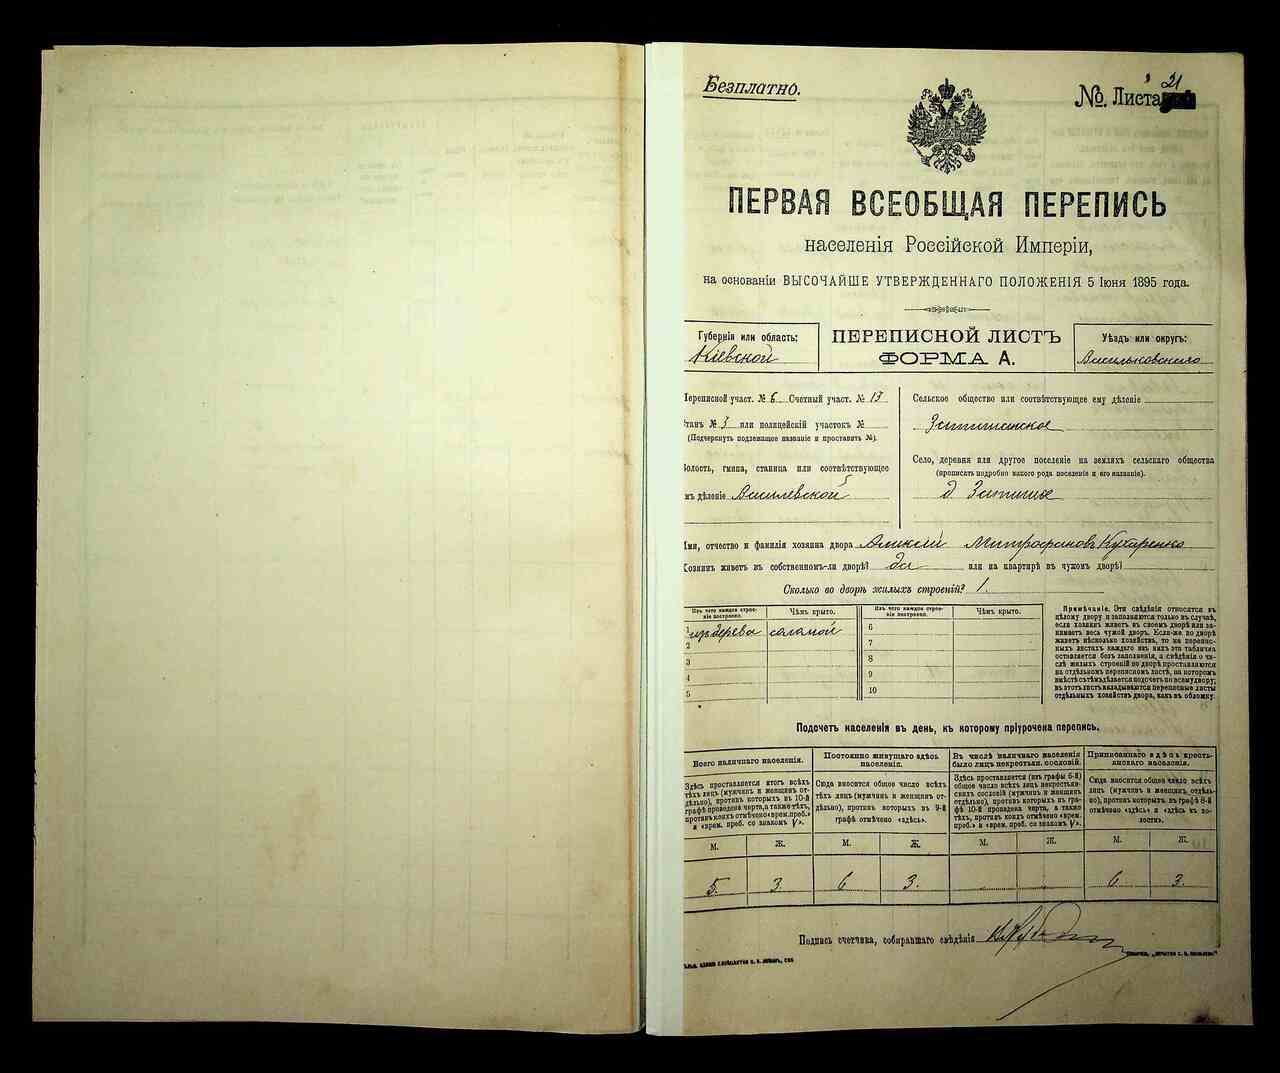 Безплатно.
№ Листа 21
ПЕРВАЯ ВСЕОБЩАЯ ПЕРЕПИСЬ
населенія Россійской Имперіи,
на основаніи ВЫСОЧАЙШЕ УТВЕРЖДЕННАГО ПОЛОЖЕНІЯ 5 Іюня 1895 года.
Губернія или область:
Кіевской
ПЕРЕПИСНОЙ ЛИСТЪ
ФОРМА А.
Уѣздъ или округъ:
Васильковскаго
Переписной участ. № 6 Счетный участ. № 13
Станъ № 3 или полицейскій участокъ №
(Подчеркнуть подлежащее названіе и проставить №).
Волость, гмина, станица или соотвѣтствующее
имъ дѣленіе Василевской
Сельское общество или соотвѣтствующее ему дѣленіе
Затишанское
Село, деревня или другое поселеніе на земляхъ сельскаго общества
(прописать подробно какого рода поселеніе и его названіе).
д Затишье
Имя, отчество и фамилія хозяина двора Алексѣй Митрофановъ Кухаренко
Хозяинъ живетъ въ собственномъ-ли дворѣ? да или на квартирѣ въ чужомъ дворѣ?
Сколько во дворѣ жилыхъ строеній? 1.
Изъ чего каждое строеніе построено. Чѣмъ крыто. Изъ чего каждое строеніе построено. Чѣмъ крыто.
1 изъ дерева соломой 6
2 7
3 8
4 9
5 10
Примѣчаніе. Эти свѣдѣнія относятся къ
цѣлому двору и заполняются только въ случаѣ,
если хозяинъ живетъ въ своемъ дворѣ или занимаетъ
весь чужой дворъ. Если-же во дворѣ
живетъ нѣсколько хозяйствъ, то на переписныхъ
листахъ каждаго изъ нихъ эта табличка
оставляется безъ заполненія, а свѣдѣнія о числѣ
жилыхъ строеній во дворѣ проставляются
на отдѣльномъ переписномъ листѣ, на которомъ
вмѣстѣ съ тѣмъ дѣлается подсчетъ по всему двору;
въ этотъ листъ вкладываются переписные листы
отдѣльныхъ хозяйствъ двора, какъ въ обложку.
Подсчетъ населенія въ день, къ которому пріурочена перепись.
Всего наличнаго населенія.
Здѣсь проставляется итогъ всѣхъ
тѣхъ лицъ (мужчинъ и женщинъ отдѣльно),
противъ которыхъ въ 10-й
графѣ проведена черта, а также тѣхъ,
противъ коихъ отмѣчено «врем. преб.»
и «врем. преб. со знакомъ V».
Постоянно живущаго здѣсь
населенія.
Сюда вносится общее число всѣхъ
тѣхъ лицъ (мужчинъ и женщинъ отдѣльно),
противъ которыхъ въ 9-й
графѣ отмѣчено «здѣсь».
Въ числѣ наличнаго населенія
было лицъ некрестьян. сословій.
Здѣсь проставляется (изъ графы 6-й)
общее число всѣхъ лицъ некрестьянскихъ
сословій (мужчинъ и женщинъ
отдѣльно), противъ которыхъ въ графѣ
10-й проведена черта, а также
тѣхъ, противъ коихъ отмѣчено «врем.
преб.» и «врем. преб. со знакомъ V».
Приписаннаго здѣсь крестьянскаго
населенія.
Сюда вносится общее число всѣхъ
лицъ (мужчинъ и женщинъ, отдѣльно),
противъ которыхъ въ графѣ 8-й
отмѣчено «здѣсь» и «здѣсь въ волости».
М. Ж. М. Ж. М. Ж. М. Ж.
5. 3. 6 3. 6. 3.
Подпись счетчика, собиравшаго свѣдѣнія